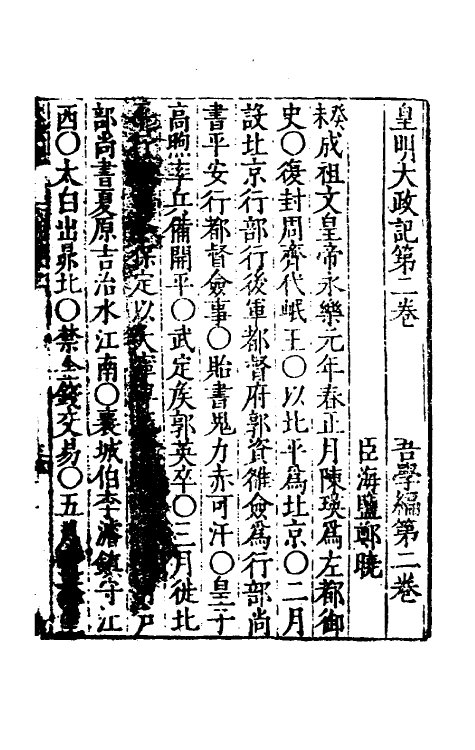 皇明大政記第二卷 吾學編第二卷
臣海鹽鄭曉
癸未成祖文皇帝永樂元年春正月陳瑛爲左都御
史○復封周齊代岷王○以北平爲北京○二月
設北京行部行後軍都督府郭資雒僉爲行部尚
書平安行都督僉事○貽書鬼力赤可汗○皇二子
高煦率兵備開平○武定侯郭英卒○三月徙北
保定以大
部尚書夏原吉治水江南○襄城伯李濬鎮守江
西○太白出昴北○禁金銀交易○五